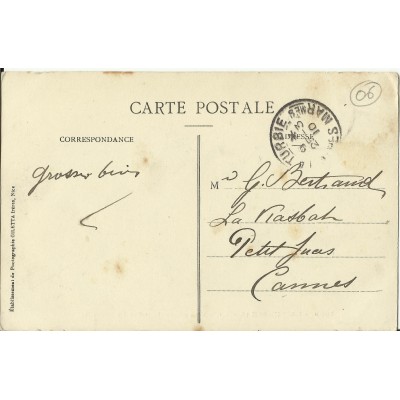 06
CARTE POSTALE
CORRESPONDANCE
ADRESSE
TURBIE
25 - 3
10
MARMES
grosses bises
M G. Bertrand
La Kasbah
Petit Juas
Cannes
Établissement de Photographie GILETTA frères, Nice